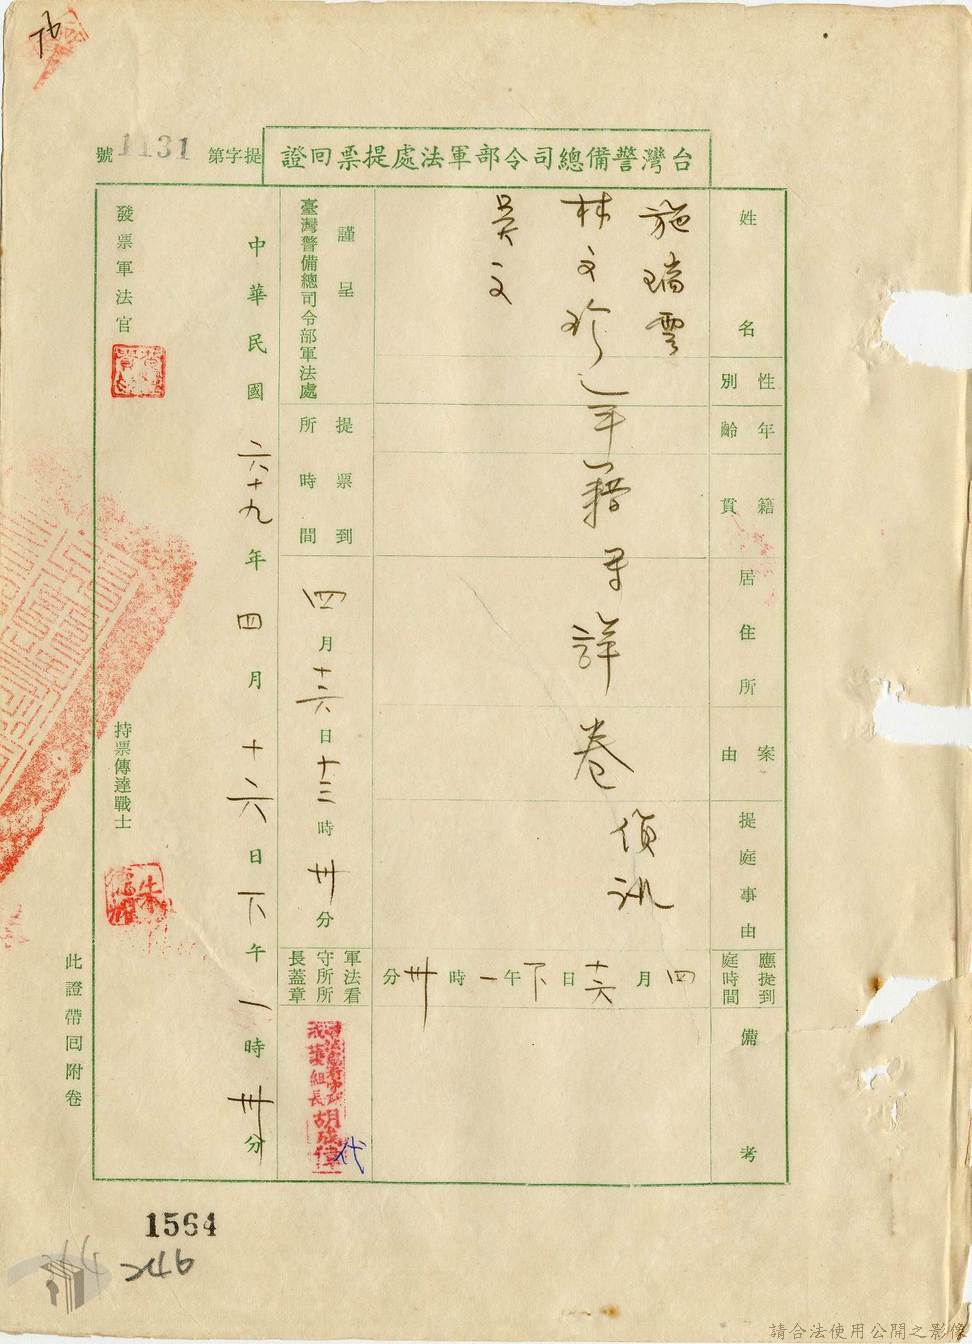 76
台灣警備總司令部軍法處提票回證
提字第1131號
姓名
性別
年齡
籍貫
居住所
案由
提庭事由
應提到庭時間
備考
施瑞雲
林文珍
吳文
年籍
詳卷
偵訊
四月十六日下午一時卅分
謹呈
臺灣警備總司令部軍法處
提票到所時間
四月十六日十三時卅分
軍法看守所所長蓋章
戒護組長胡成
代
中華民國六十九年四月十六日下午一時卅分
發票軍法官
持票傳達戰士
朱
此證帶回附卷
1564
246
請合法使用公開之影像